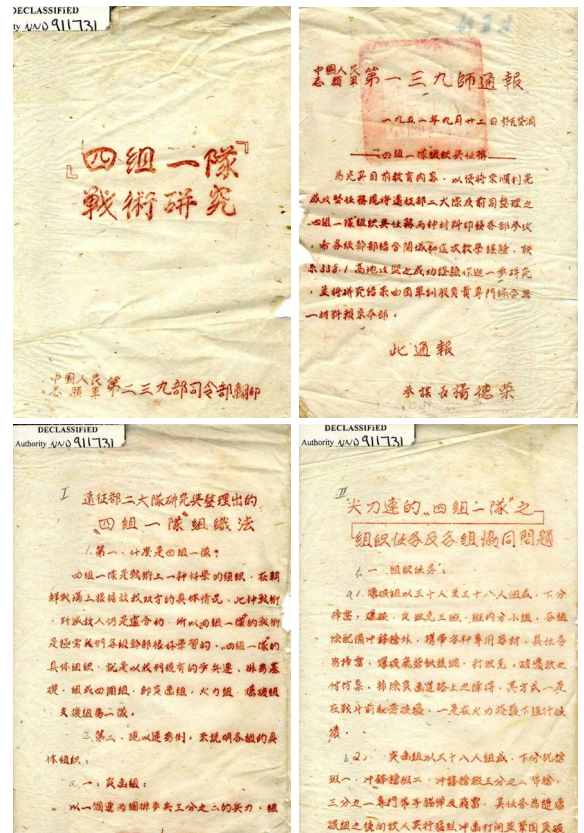 DECLASSIFIED
ty NND 911731
『四組一隊』
戰術研究
中國人民
志願軍
第二三九部司令部翻印
中國人民
志願軍
第一三九師通報
一九五二年九月廿二日
四組一隊組織與任務
為充實目前教育內容,以便將來順利完
成攻堅任務現將遠征部二大隊及前司整理之
四組一隊組織與任務兩种材料印發各部參攷
,希各級幹部結合
高地攻堅之成功經驗作進一步研究
,並將研究結果由團軍訓股負責專門綜合
一材料報來本部。
此通報
參謀長楊德榮
DECLASSIFIED
Authority NND 911731
I
遠征部二大隊研究與整理出的
"四組一隊"組織法
1.第一、什麼是四組一隊?
四組一隊是戰術上一种科學的組織,在朝
鮮戰場上根據敌我双方的具体情況,此种戰術
是適合的,所以四組一隊的戰術
是極需我們各級幹部很好學習的,"四組一隊"的
具体組織,就是以我們現有的步兵連,排為基
礎,組成四個組,即突击組,火力組,爆破組
,支援組為一隊,
2.第二,現以連為例,來說明各組的具
体組織:
a.一:突击組:
以一個連兩個排步兵三分之二的兵力,組
DECLASSIFIED
Authority NND 911731
II
尖刀連的"四組一隊"之
組織任务及各組協同問題
一、組織任务:
1.爆破組以三十人至三十八人組成,下分
掃雷,爆破,突擊三班,班內分小組,各組
除配備冲鋒槍外,攜帶各种專用器材,其任务
為掃雷,爆破鹿砦鉄絲網,打地堡,破壞敌之
,排除突击道路上之障碍,其方式一是
在戰斗前秘密破壞,一是在火力掩護下強行破
壞。
2.突击組以三十八人組成,下分机槍
班一,冲鋒槍班二,冲鋒槍班三分之二帶槍,
三分之一專門帶手榴弹及飛雷,其任务為隨爆
破組之後向敌人實行猛烈冲击打開並鞏固突破